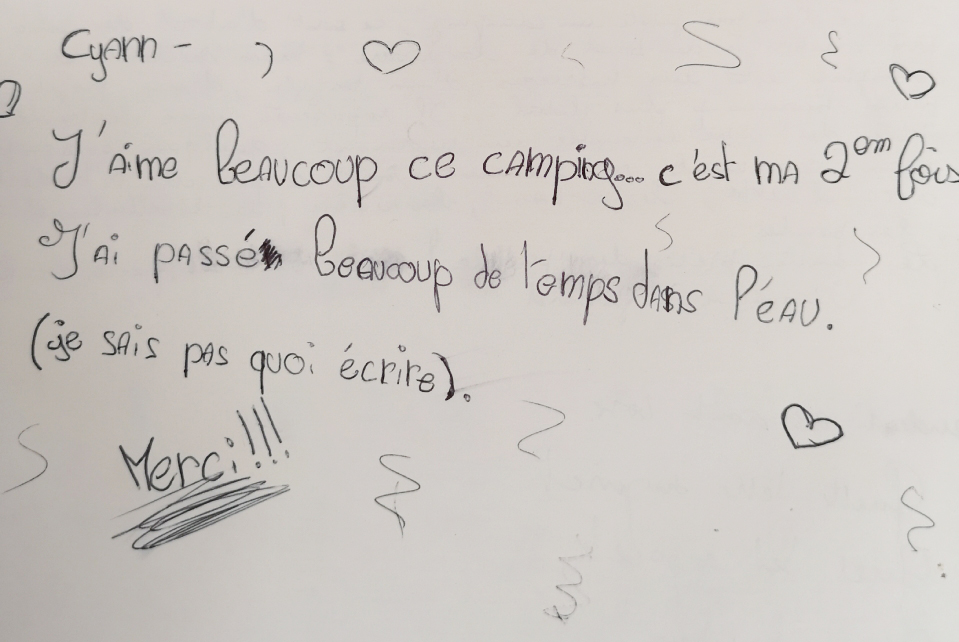 Cyann -
J'aime beaucoup ce camping... c'est ma 2em fois
J'ai passé beaucoup de temps dans l'eau.
(je sais pas quoi écrire).
Merci!!!